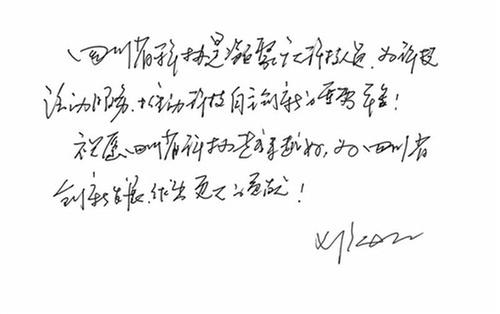 四川省科协是凝聚广大科技人员、为科技
活动服务、推动科技自主创新的重要平台！
祝愿四川省科协越办越好，为四川省
创新发展作出更大的贡献！